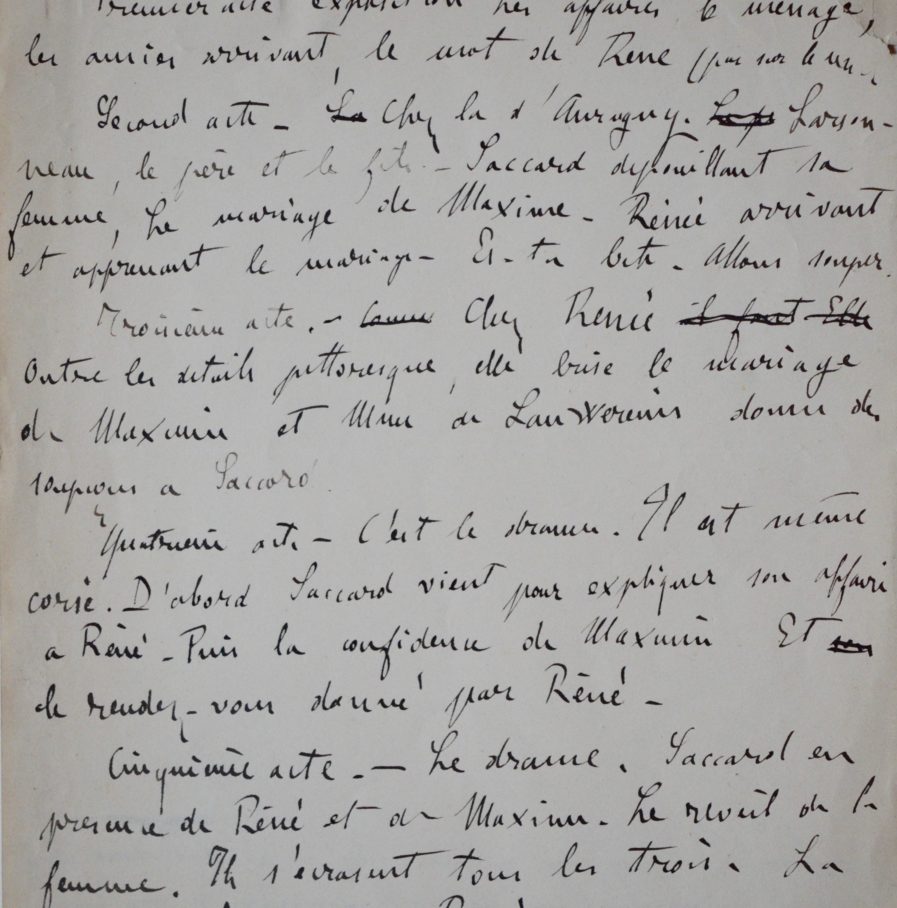 Premier acte exposition des affaires le ménage,
les amies arrivant, le mot de Renée (pas sur le
Second acte – La Chez la d'Aurigny. Larson-
neau, le père et le fils. – Saccard dépouillant sa
femme, Le mariage de Maxime – Rénée arrivant
et apprenant le mariage – Es-tu bête – Allons souper.
Troisième acte. – Chez Renée il faut Elle
Outre les détails pittoresque, elle brise le mariage
de Maxime et Mme de Lauwerens donne des
soupçons a Saccard
Quatrième acte – C'est le drame. Il est même
corsé. D'abord Saccard vient pour expliquer son affaire
a Réné – Puis la confidence de Maxime Et
le rendez-vous donné par Réné –
Cinquième acte. – Le drame. Saccard en
présence de Réné et de Maxime – Le reveil de la
femme. Ils s'écrasent tous les trois – La